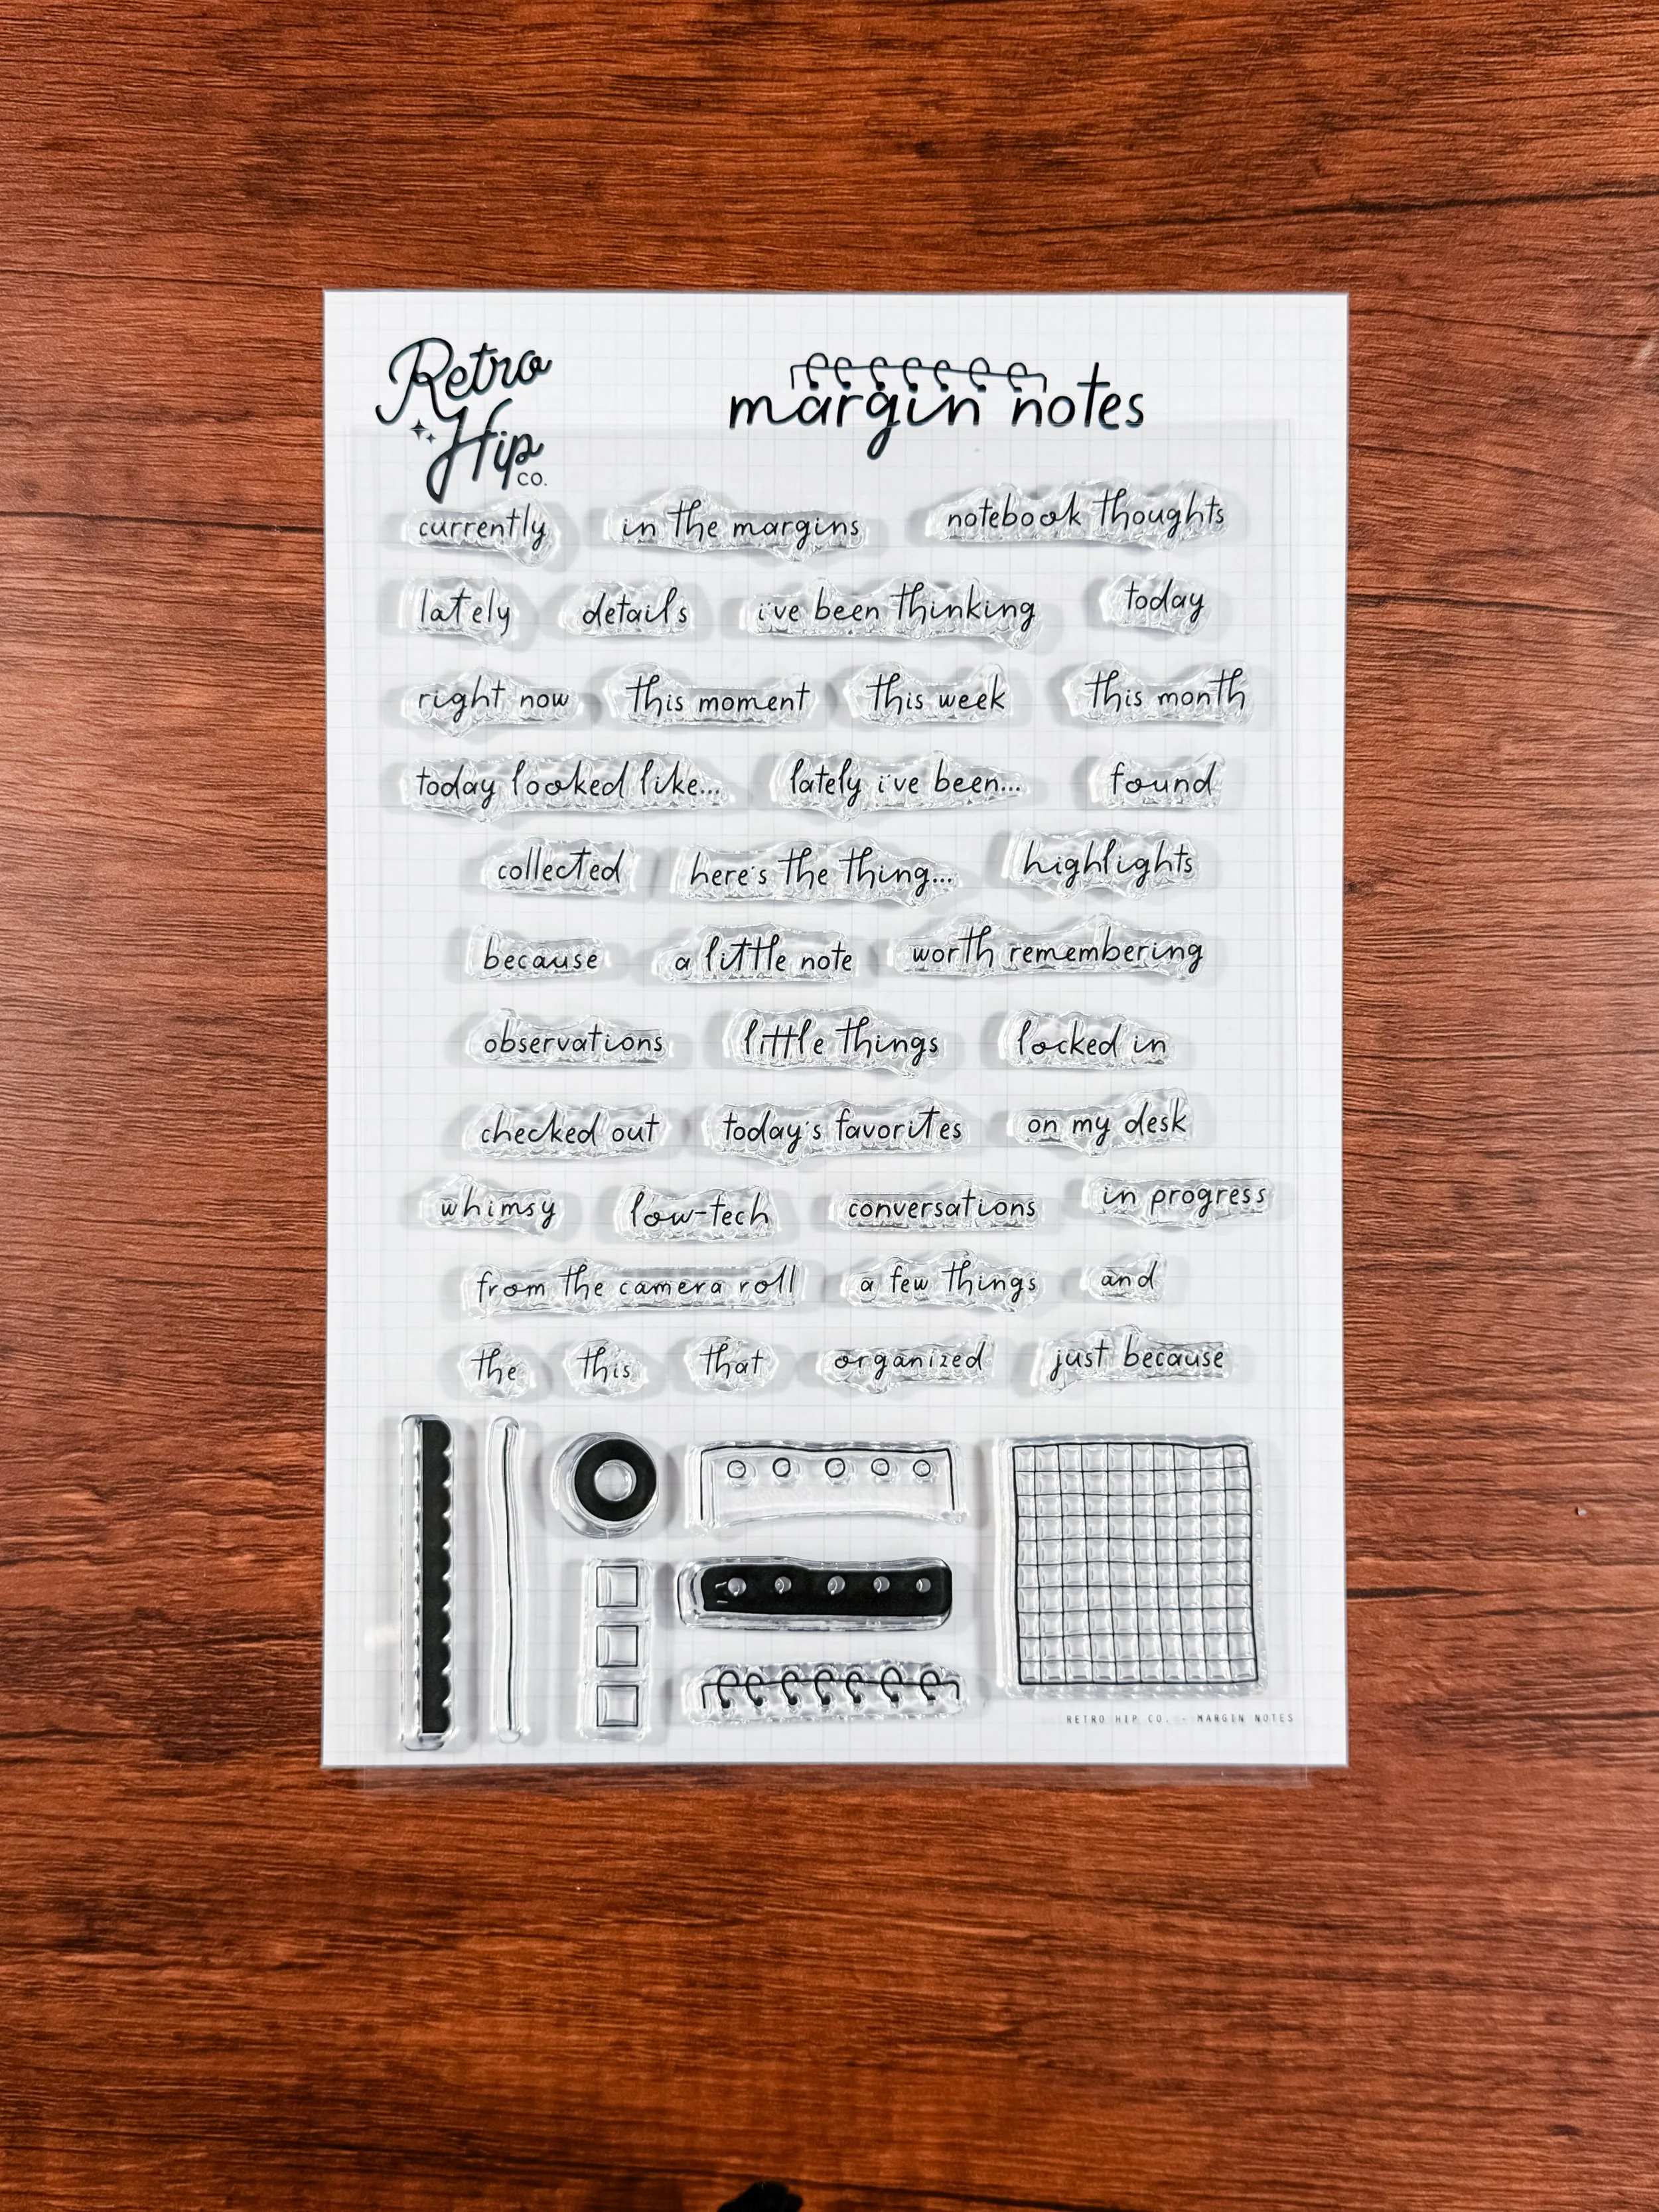 Retro
Hip
CO.
margin notes
currently in the margins notebook thoughts
lately details i've been thinking today
right now this moment this week this month
today looked like... lately i've been... found
collected here's the thing... highlights
because a little note worth remembering
observations little things locked in
checked out today's favorites on my desk
whimsy low-tech conversations in progress
from the camera roll a few things and
the this that organized just because
RETRO HIP CO. - MARGIN NOTES